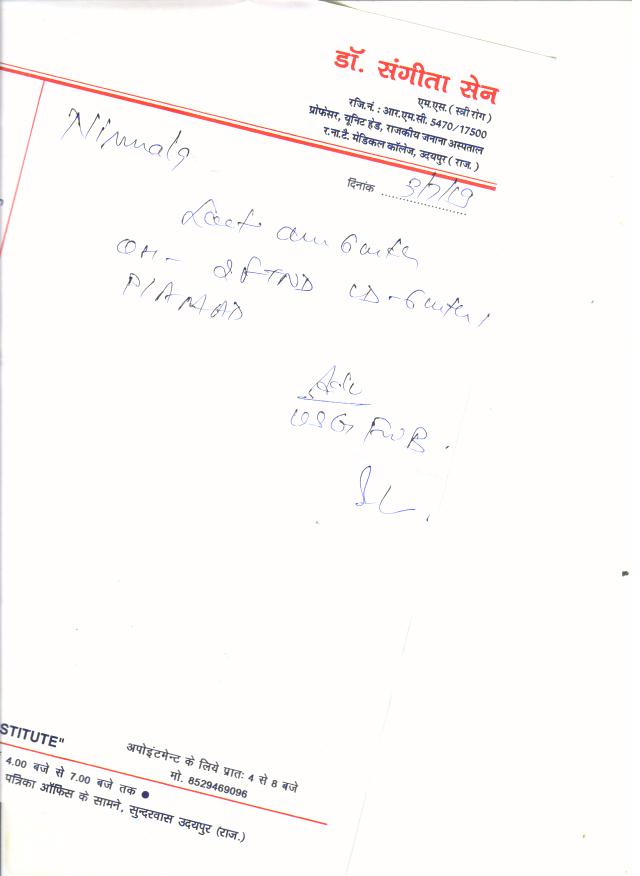 डॉ. संगीता सेन
एम.एस. ( स्त्री रोग )
रजि.नं. : आर.एम.सी. 5470/17500
प्रोफेसर, यूनिट हेड, राजकीय जनाना अस्पताल
र.ना.टै. मेडिकल कॉलेज, उदयपुर ( राज. )
Nirmala
दिनांक 3/7/19
OH - 2FTND LD - 6
P/A NAD
Adv
USG FWB.
STITUTE"
अपोइंटमेन्ट के लिये प्रातः 4 से 8 बजे
मो. 8529469096
4.00 बजे से 7.00 बजे तक ●
पत्रिका ऑफिस के सामने, सुन्दरवास उदयपुर (राज.)